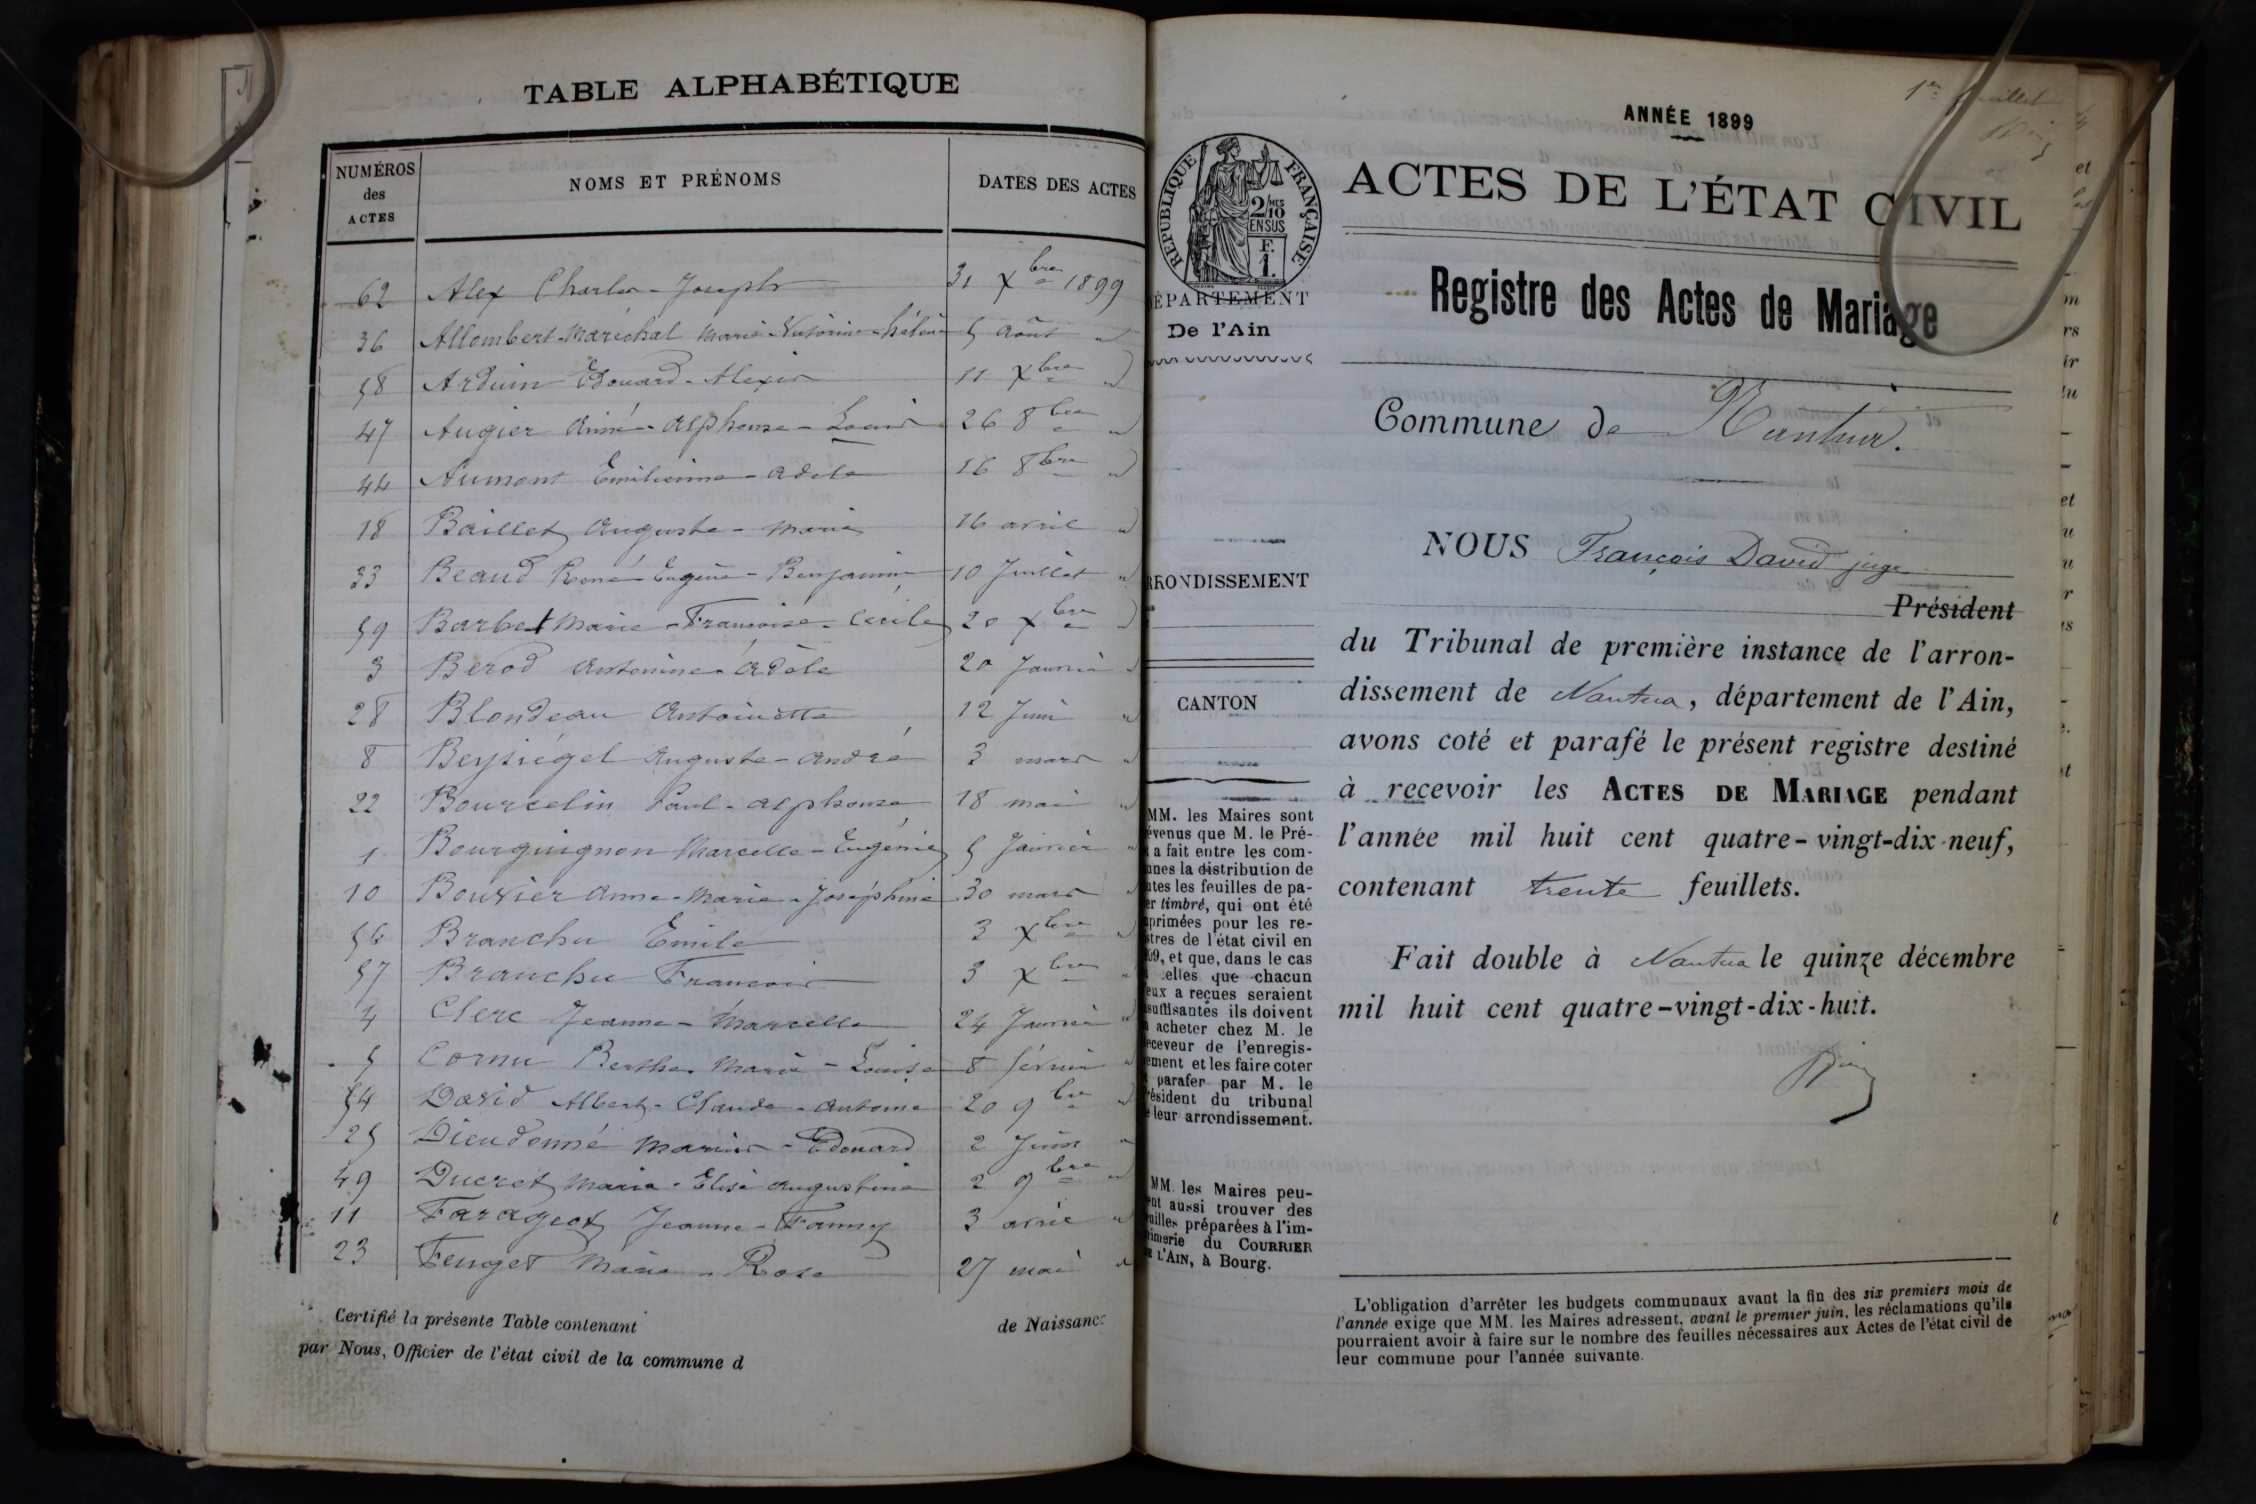 TABLE ALPHABÉTIQUE
NUMÉROS des ACTES
NOMS ET PRÉNOMS
DATES DES ACTES
62 Alex Charles-Joseph 31 Xbre 1899
36 Allombert-Maréchal Marie-Victorine-hélène 5 août "
58 Arduin Edouard-Alexis 11 Xbre "
47 Augier Aimé-Alphonse-Louis 26 8bre "
44 Aumont Emilienne-Adèle 16 8bre "
18 Baillet Auguste-Marie 16 avril "
33 Beaud René-Eugène-Benjamin 10 Juillet "
59 Barbet Marie-Françoise-Cécile 20 Xbre "
3 Berod Antonine-Adèle 20 Janvier "
28 Blondeau Antoinette 12 Juin "
8 Beysiégel Auguste-André 3 mars "
22 Bourcelin Paul-Alphonse 18 mai "
1 Bourguignon Marcelle-Eugénie 5 Janvier "
10 Bouvier Anne-Marie-Joséphine 30 mars "
56 Branchu Emile 3 Xbre "
57 Branchu François 3 Xbre "
4 Clerc Jeanne-Marcelle 24 Janvier "
5 Cornu Berthe-Marie-Louise 8 février "
54 David Albert-Claude-Antoine 20 9bre "
25 Dieudonné Marius-Edouard 2 Juin "
49 Ducret Maria-Elisa Augustine 2 9bre "
11 Farageot Jeanne-Fanny 3 avril "
23 Fenget Marie-Rose 27 mai "
Certifié la présente Table contenant de Naissance
par Nous, Officier de l'état civil de la commune d
1er feuillet
ANNÉE 1899
RÉPUBLIQUE FRANÇAISE
2/10 MES
EN SUS
F. 1.
ACTES DE L'ÉTAT CIVIL
Registre des Actes de Mariage
ÉPARTEMENT
De l'Ain
Commune de Nantua.
NOUS François David juge
RRONDISSEMENT
Président
du Tribunal de première instance de l'arron-
dissement de Nantua, département de l'Ain,
avons coté et parafé le présent registre destiné
à recevoir les ACTES DE MARIAGE pendant
l'année mil huit cent quatre-vingt-dix-neuf,
contenant trente feuillets.
Fait double à Nantua le quinze décembre
mil huit cent quatre-vingt-dix-huit.
CANTON
MM. les Maires sont
évenus que M. le Pré-
a fait entre les com-
unes la distribution de
utes les feuilles de pa-
er timbré, qui ont été
primées pour les re-
stres de l'état civil en
99, et que, dans le cas
celles que chacun
eux a reçues seraient
suffisantes ils doivent
acheter chez M. le
eceveur de l'enregis-
ement et les faire coter
parafer par M. le
résident du tribunal
e leur arrondissement.
MM. les Maires peu-
ent aussi trouver des
uilles préparées à l'im-
imerie du COURRIER
E L'AIN, à Bourg.
L'obligation d'arrêter les budgets communaux avant la fin des six premiers mois de
l'année exige que MM. les Maires adressent, avant le premier juin, les réclamations qu'ils
pourraient avoir à faire sur le nombre des feuilles nécessaires aux Actes de l'état civil de
leur commune pour l'année suivante.